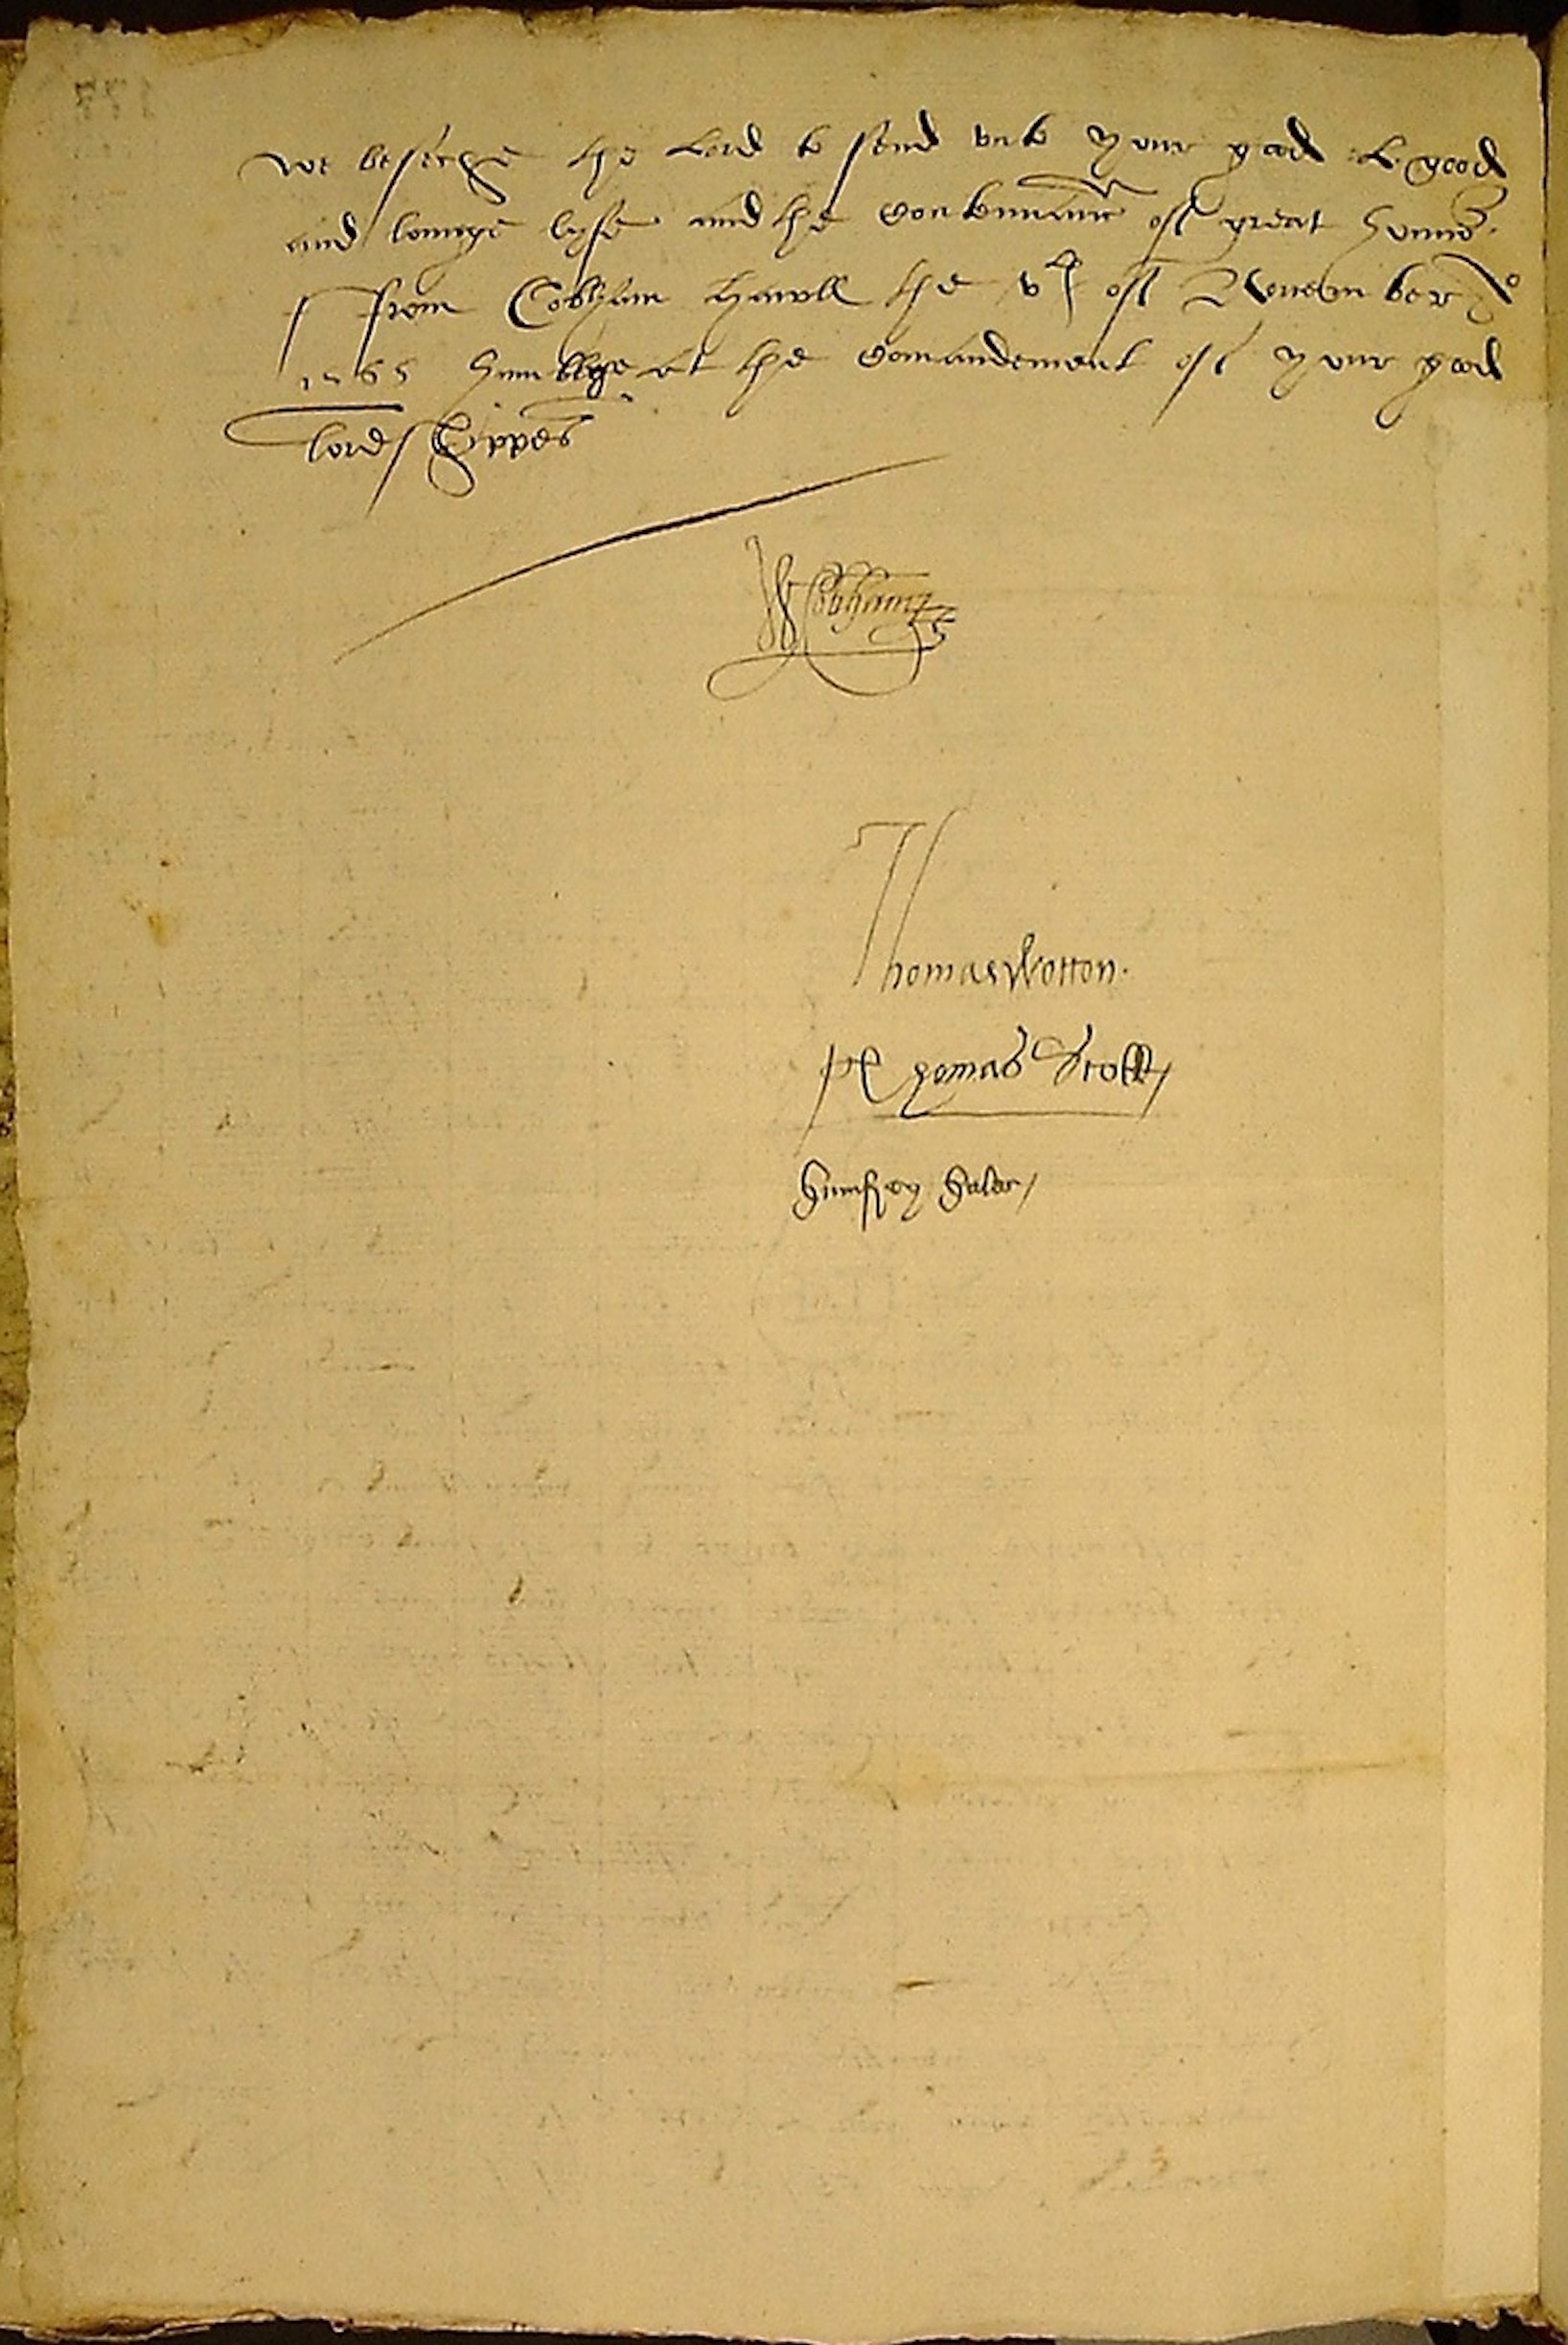 we beseche the Lord to send unto your good L. good
and longe lyfe and the contynuance of great honnor.
from Cobham hawll the vth of November
1565 humblye at the comandement of your good
lordshippes
W Cobham
Thomas Wotton.
Thomas Scott
Humfrey Hales